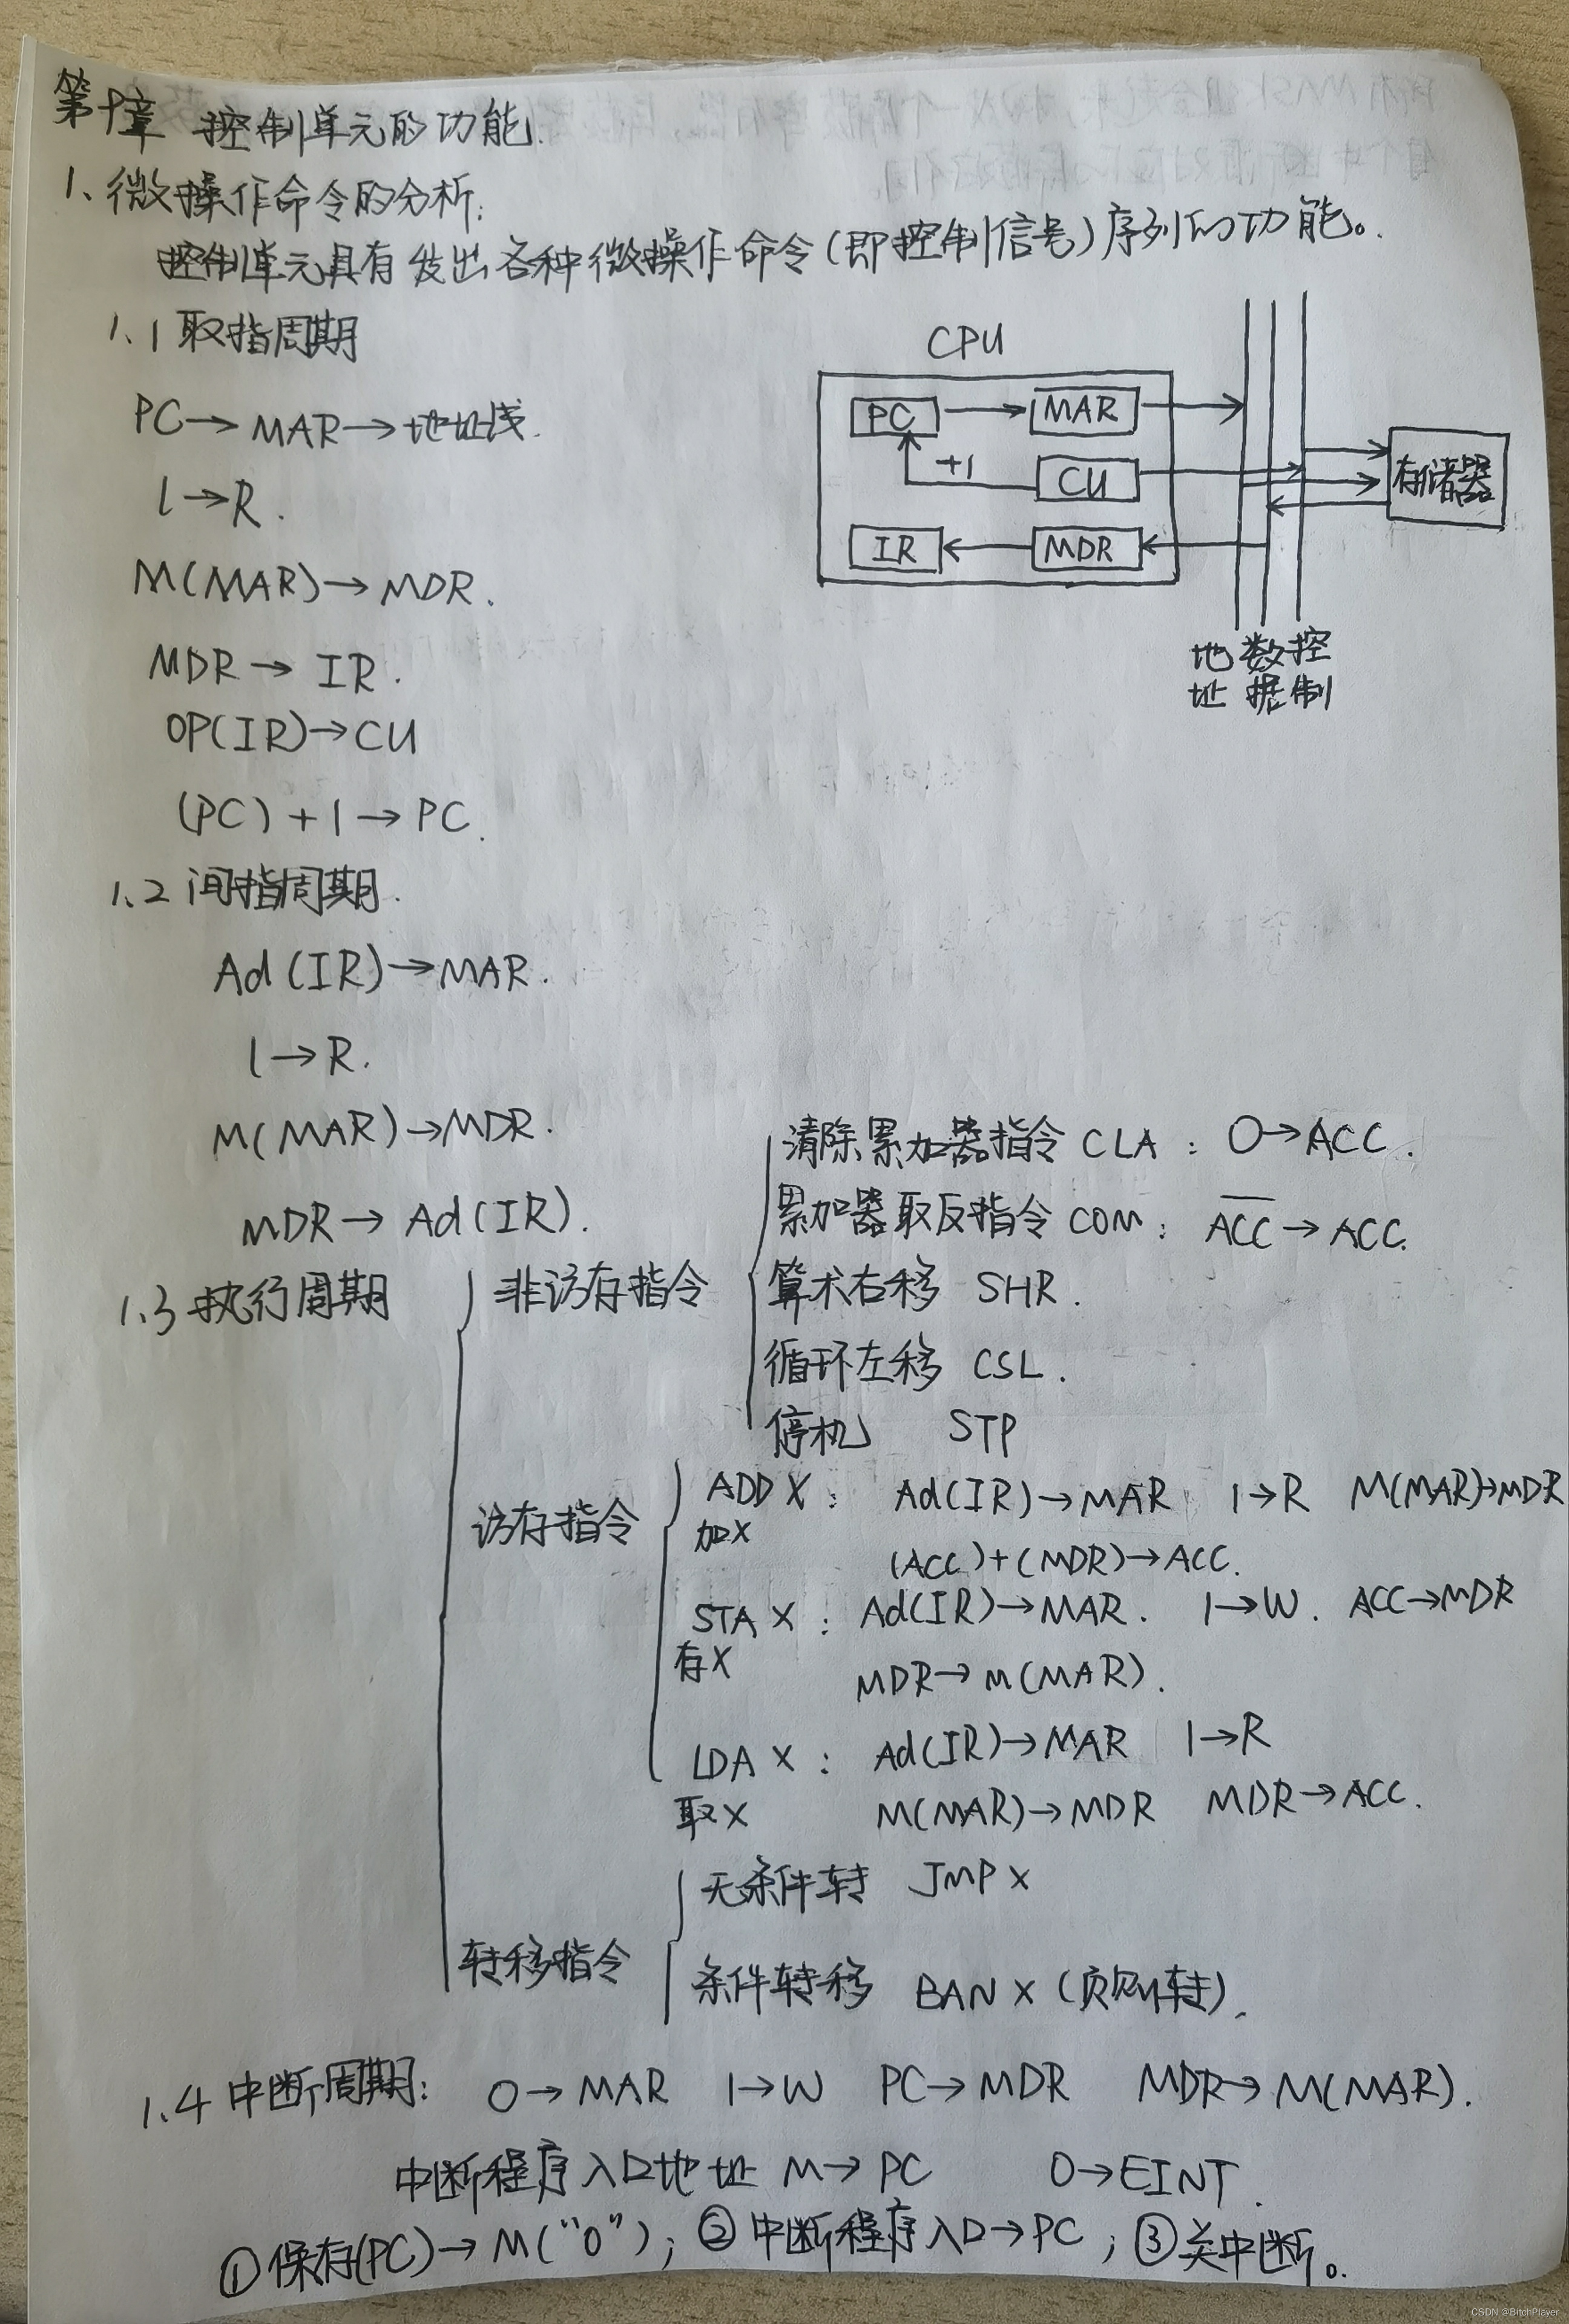 第十章 控制单元的功能.
1、微操作命令的分析:
控制单元具有发出各种微操作命令(即控制信号)序列的功能。
1.1 取指周期
PC→MAR→地址线.
1→R.
M(MAR)→MDR.
MDR→IR.
OP(IR)→CU
(PC)+1→PC.
CPU
PC
MAR
+1
CU
IR
MDR
存储器
地址
数据
控制
1.2 间指周期.
Ad(IR)→MAR.
1→R.
M(MAR)→MDR.
MDR→Ad(IR).
1.3 执行周期
非访存指令
清除累加器指令 CLA: 0→ACC.
累加器取反指令 COM: A̅C̅C̅→ACC.
算术右移 SHR.
循环左移 CSL.
停机 STP
访存指令
ADD X: Ad(IR)→MAR 1→R M(MAR)→MDR
加X
(ACC)+(MDR)→ACC.
STA X: Ad(IR)→MAR. 1→W. ACC→MDR
存X
MDR→M(MAR).
LDA X: Ad(IR)→MAR 1→R
取X M(MAR)→MDR MDR→ACC.
转移指令
无条件转 JMP X
条件转移 BAN X (负则转).
1.4 中断周期: 0→MAR 1→W PC→MDR MDR→M(MAR).
中断程序入口地址 M→PC 0→EINT.
①保存(PC)→M("0"); ②中断程序入口→PC; ③关中断。
CSDN @BitchPlayer